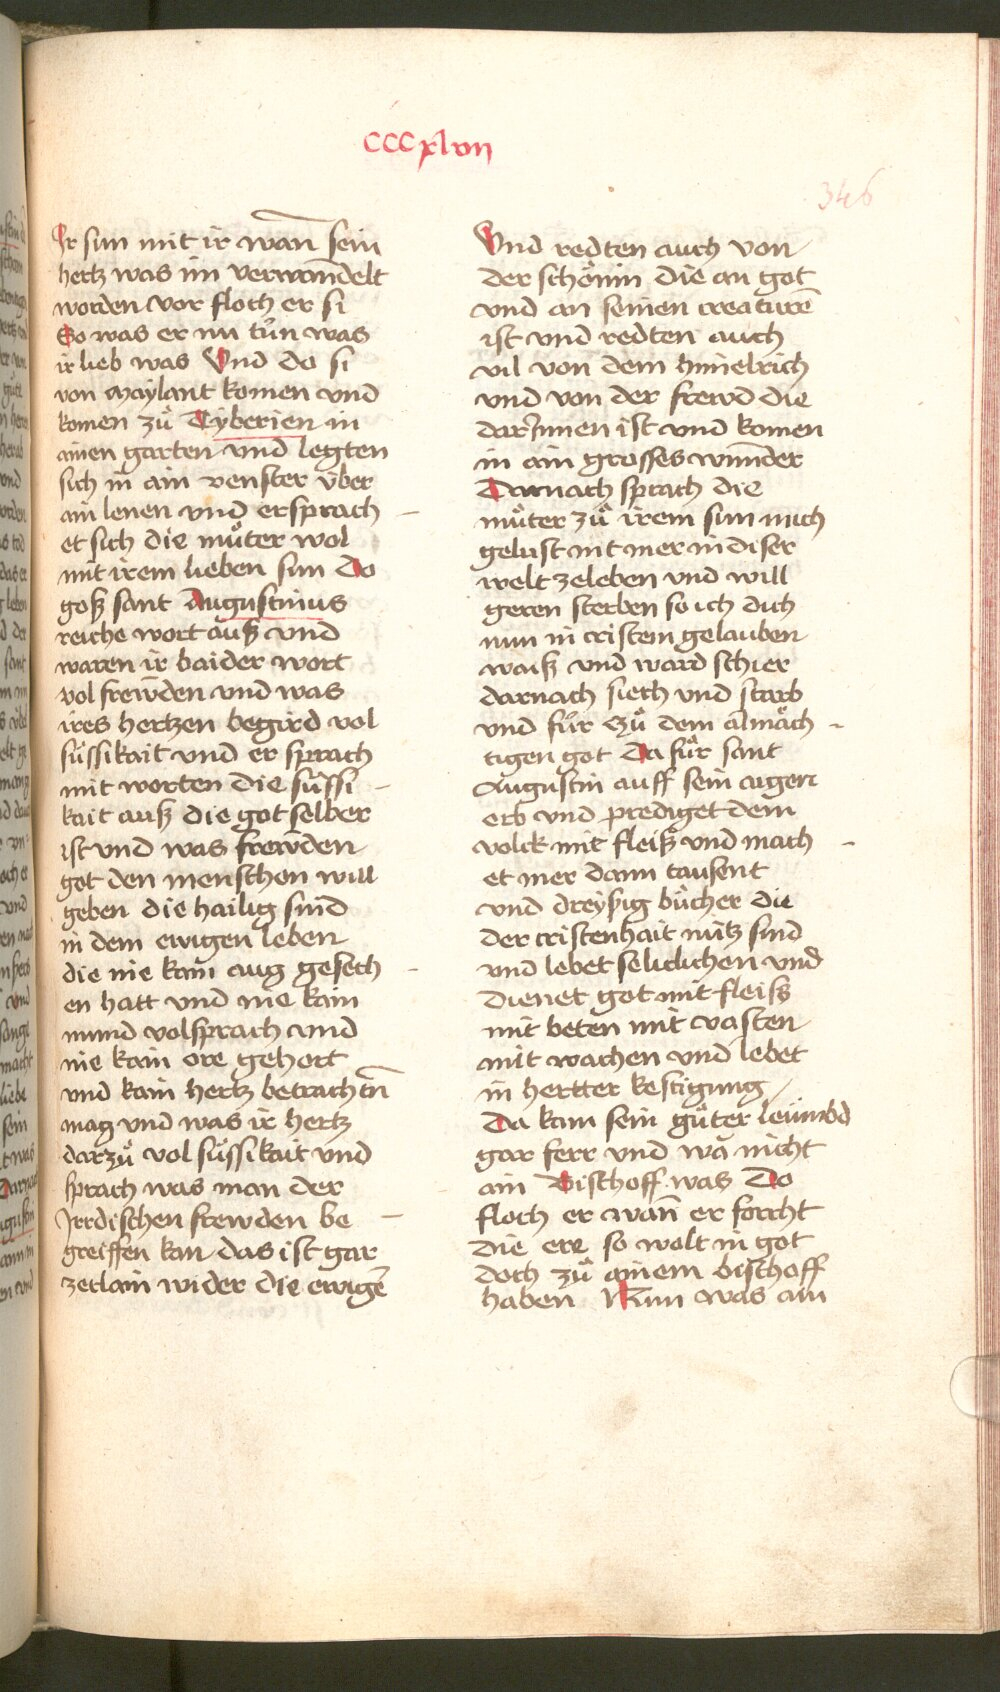 CCCxlvii
346
Ir sun mit ir wan̄ sein
hertz was im verwan̄delt
worden vor floch er si
So was er nu tůn was
ir lieb was Vnd do si
von Maylant komen vnd
komen zů Tyberien in
ainen garten vnd legten
sich in ain venster v̈ber
ain lenen vnd ersprach
et sich die můter wol
mit irem lieben sun Do
goß sant Augustinus
reiche wort auß vnd
waren ir baider wort
vol frew̄den vnd was
ires hertzen begird vol
süssikait vnd er sprach
mit worten die süssi
kait auß die got selber
ist vnd was frew̄den
got den menschen will
geben die hailig sind
in dem ewigen leben
die nie kain aug gesech
en hatt vnd nie kain
mund volsprach vnd
nie kain ore gehort
vnd kain hertz betrachtn̄
mag vnd was ir hertz
darzů vol süssikait vnd
sprach was man der
Irrdischen frewden be
greiffen kan das ist gar
zeclain wider die ewigē
Vnd redten auch von
der schönin die an got
vnd an seinen creaturē
ist vnd redten auch
vil von dem himelrich
vnd von der frewd die
dar Innen ist vnd komen
in ain grosses wunder
Darnach sprach die
můter zů irem sun mich
gelust nit mer in diser
welt zeleben vnd will
geren sterben so ich dich
nun in cristem gelauben
waiß vnd ward schier
darnach siech vnd starb
vnd fůr zů dem almäch
tigen got Da fůr sant
Augustin auff sein aigen
erb vnd prediget dem
volck mit fleiß vnd mach
et mer dann tausent
vnd dreyßig bücher die
der cristenhait nütz sind
vnd lebet seliclichen vnd
dienet got mit fleiss
mit beten mit vasten
mit wachen vnd lebet
in hertter kestigung
Da kam sein gůter leümbd
gar ferr vnd wa nicht
ain Bischoff was Do
floch er wan̄ er forcht
die ere so wolt in got
doch zů ainem bischoff
haben Nun was ain